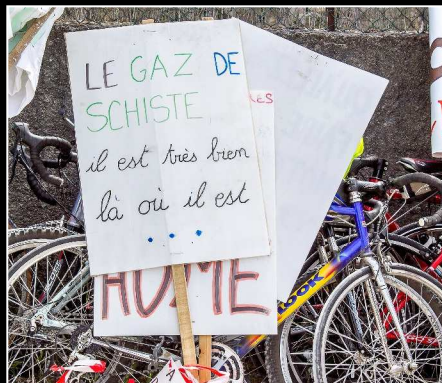 LE GAZ DE
SCHISTE
il est très bien
là où il est
...
HOME